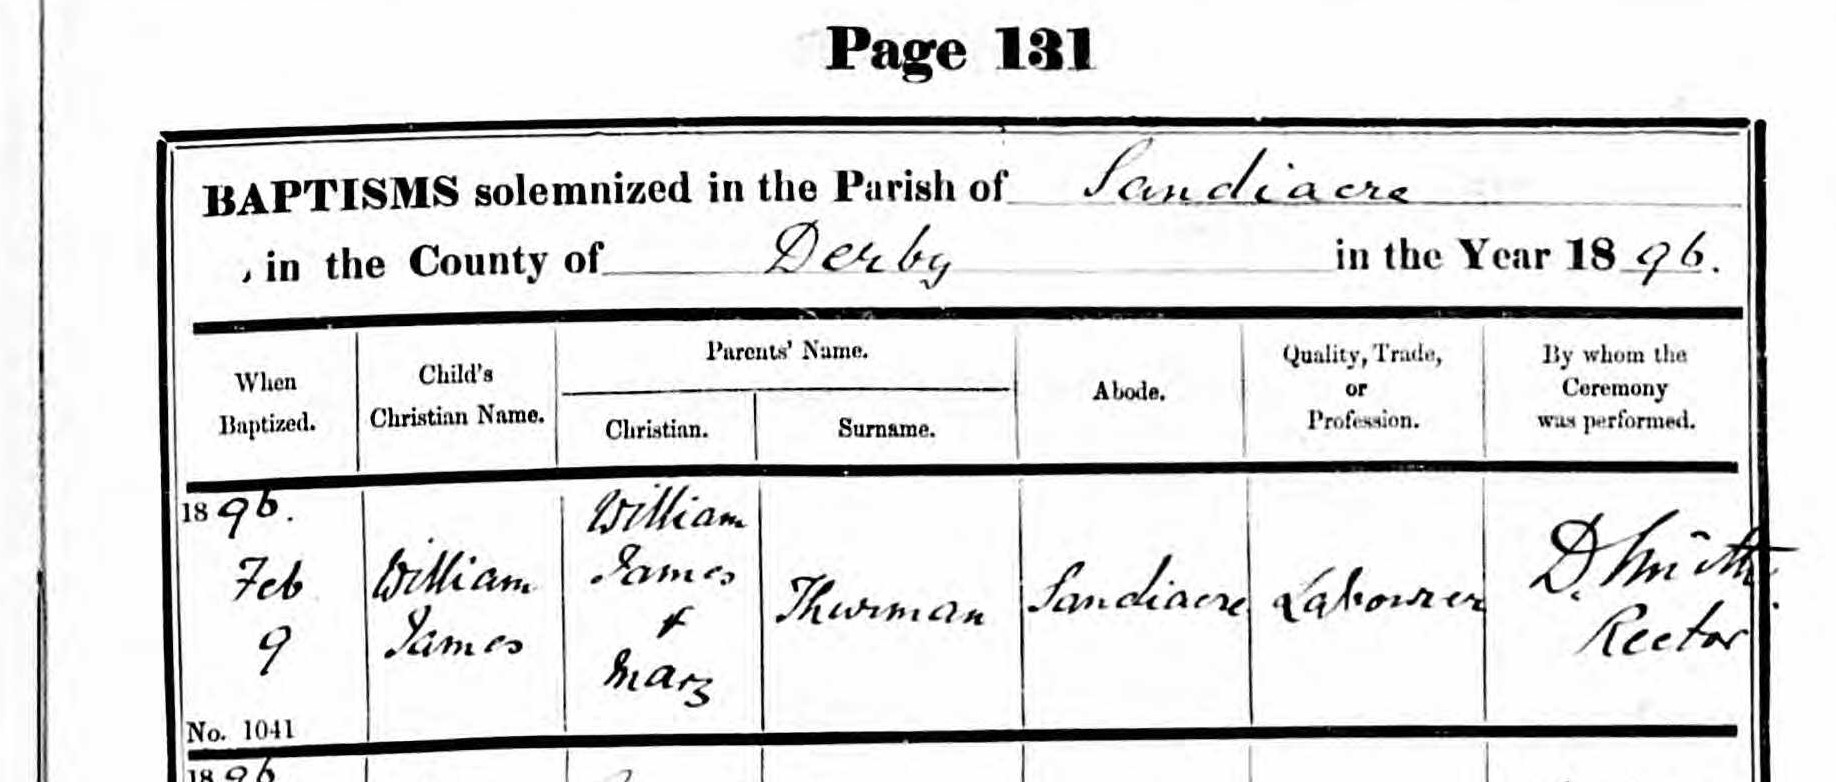 Page 131
BAPTISMS solemnized in the Parish of Sandiacre
, in the County of Derby in the Year 18 96.
When
Baptized.
Child's
Christian Name.
Parents' Name.
Christian.
Surname.
Abode.
Quality, Trade,
or
Profession.
By whom the
Ceremony
was performed.
18 96.
Feb
9
No. 1041
William
James
William
James
&
Mary
Thurman
Sandiacre
Labourer
D. Smith
Rector
18 96